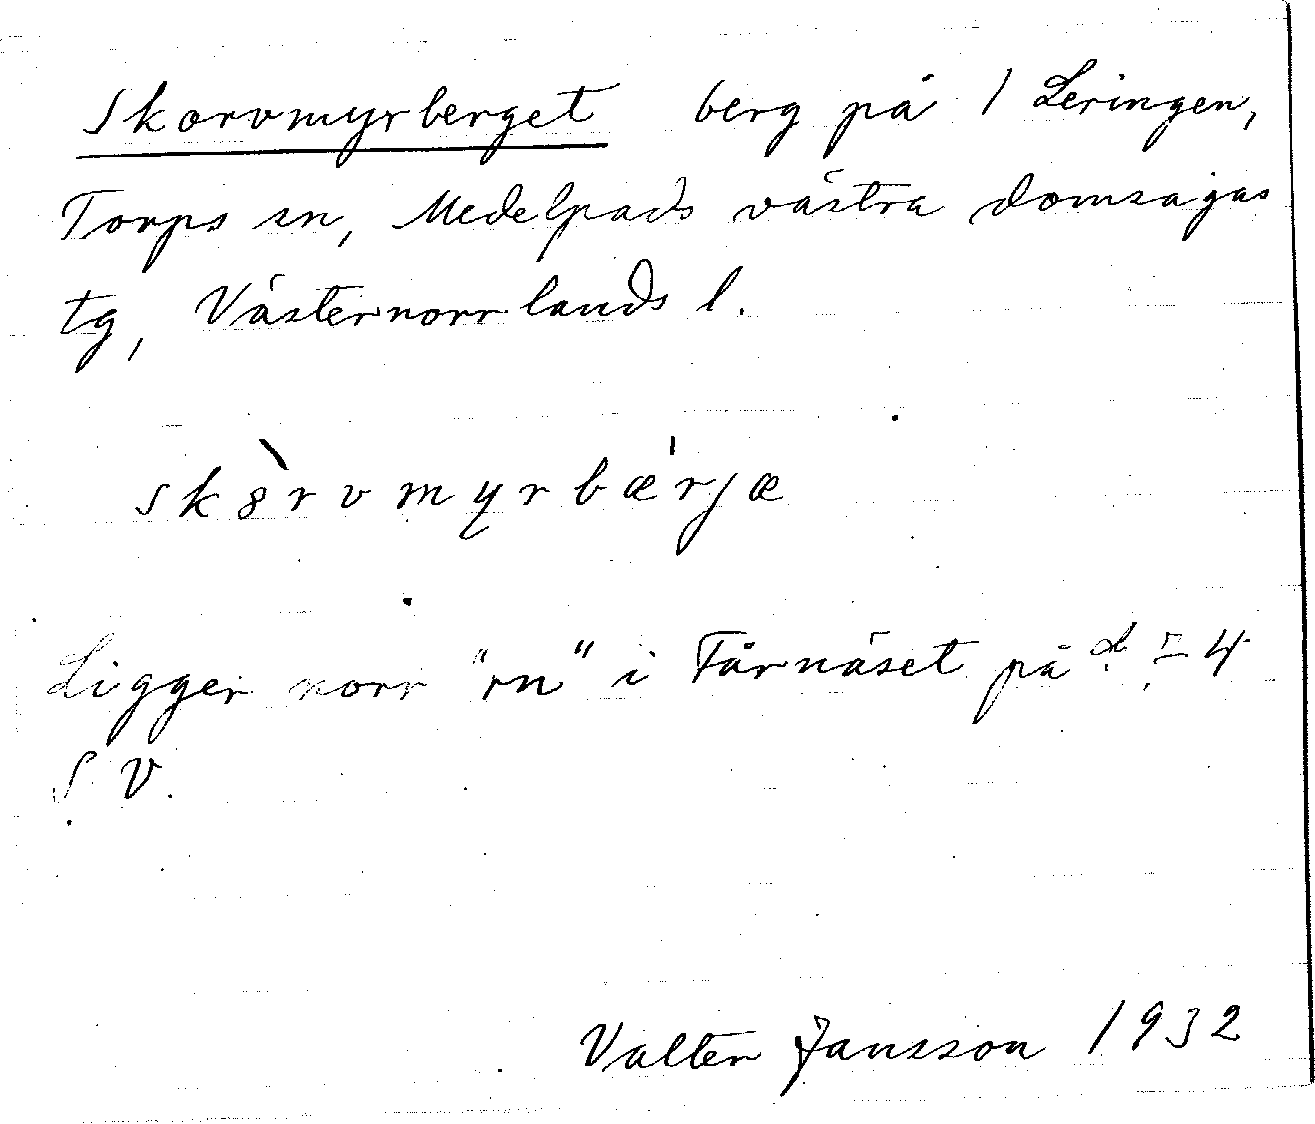 Skorvmyrberget berg på 1 Leringen,
Torps sn, Medelpads västra domsagas
tg, Västernorrlands l.
skòrvmyrbæ'rjæ
Ligger norr "rn" i Fårnäset på
S V.
Valter Jansson 1932